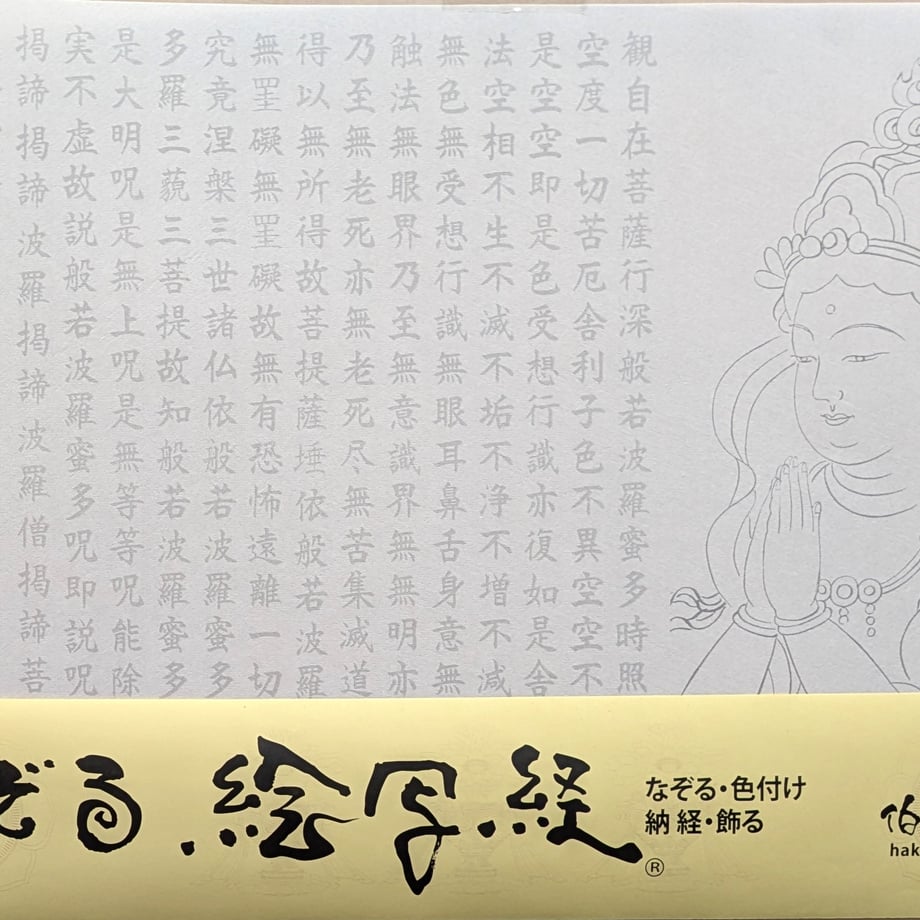 観自在菩薩行深般若波羅蜜多時照
空度一切苦厄舎利子色不異空空不
是空空即是色受想行識亦復如是舎
法空相不生不滅不垢不浄不増不減
無色無受想行識無眼耳鼻舌身意無
触法無眼界乃至無意識界無無明亦
乃至無老死亦無老死尽無苦集滅道
得以無所得故菩提薩埵依般若波羅
無罣礙無罣礙故無有恐怖遠離一切
究竟涅槃三世諸仏依般若波羅蜜多
多羅三藐三菩提故知般若波羅蜜多
是大明呪是無上呪是無等等呪能除
実不虚故説般若波羅蜜多呪即説呪
掲諦掲諦波羅掲諦波羅僧掲諦菩
ぞる.絵写.経®
なぞる・色付け
納経・飾る
伯
hak